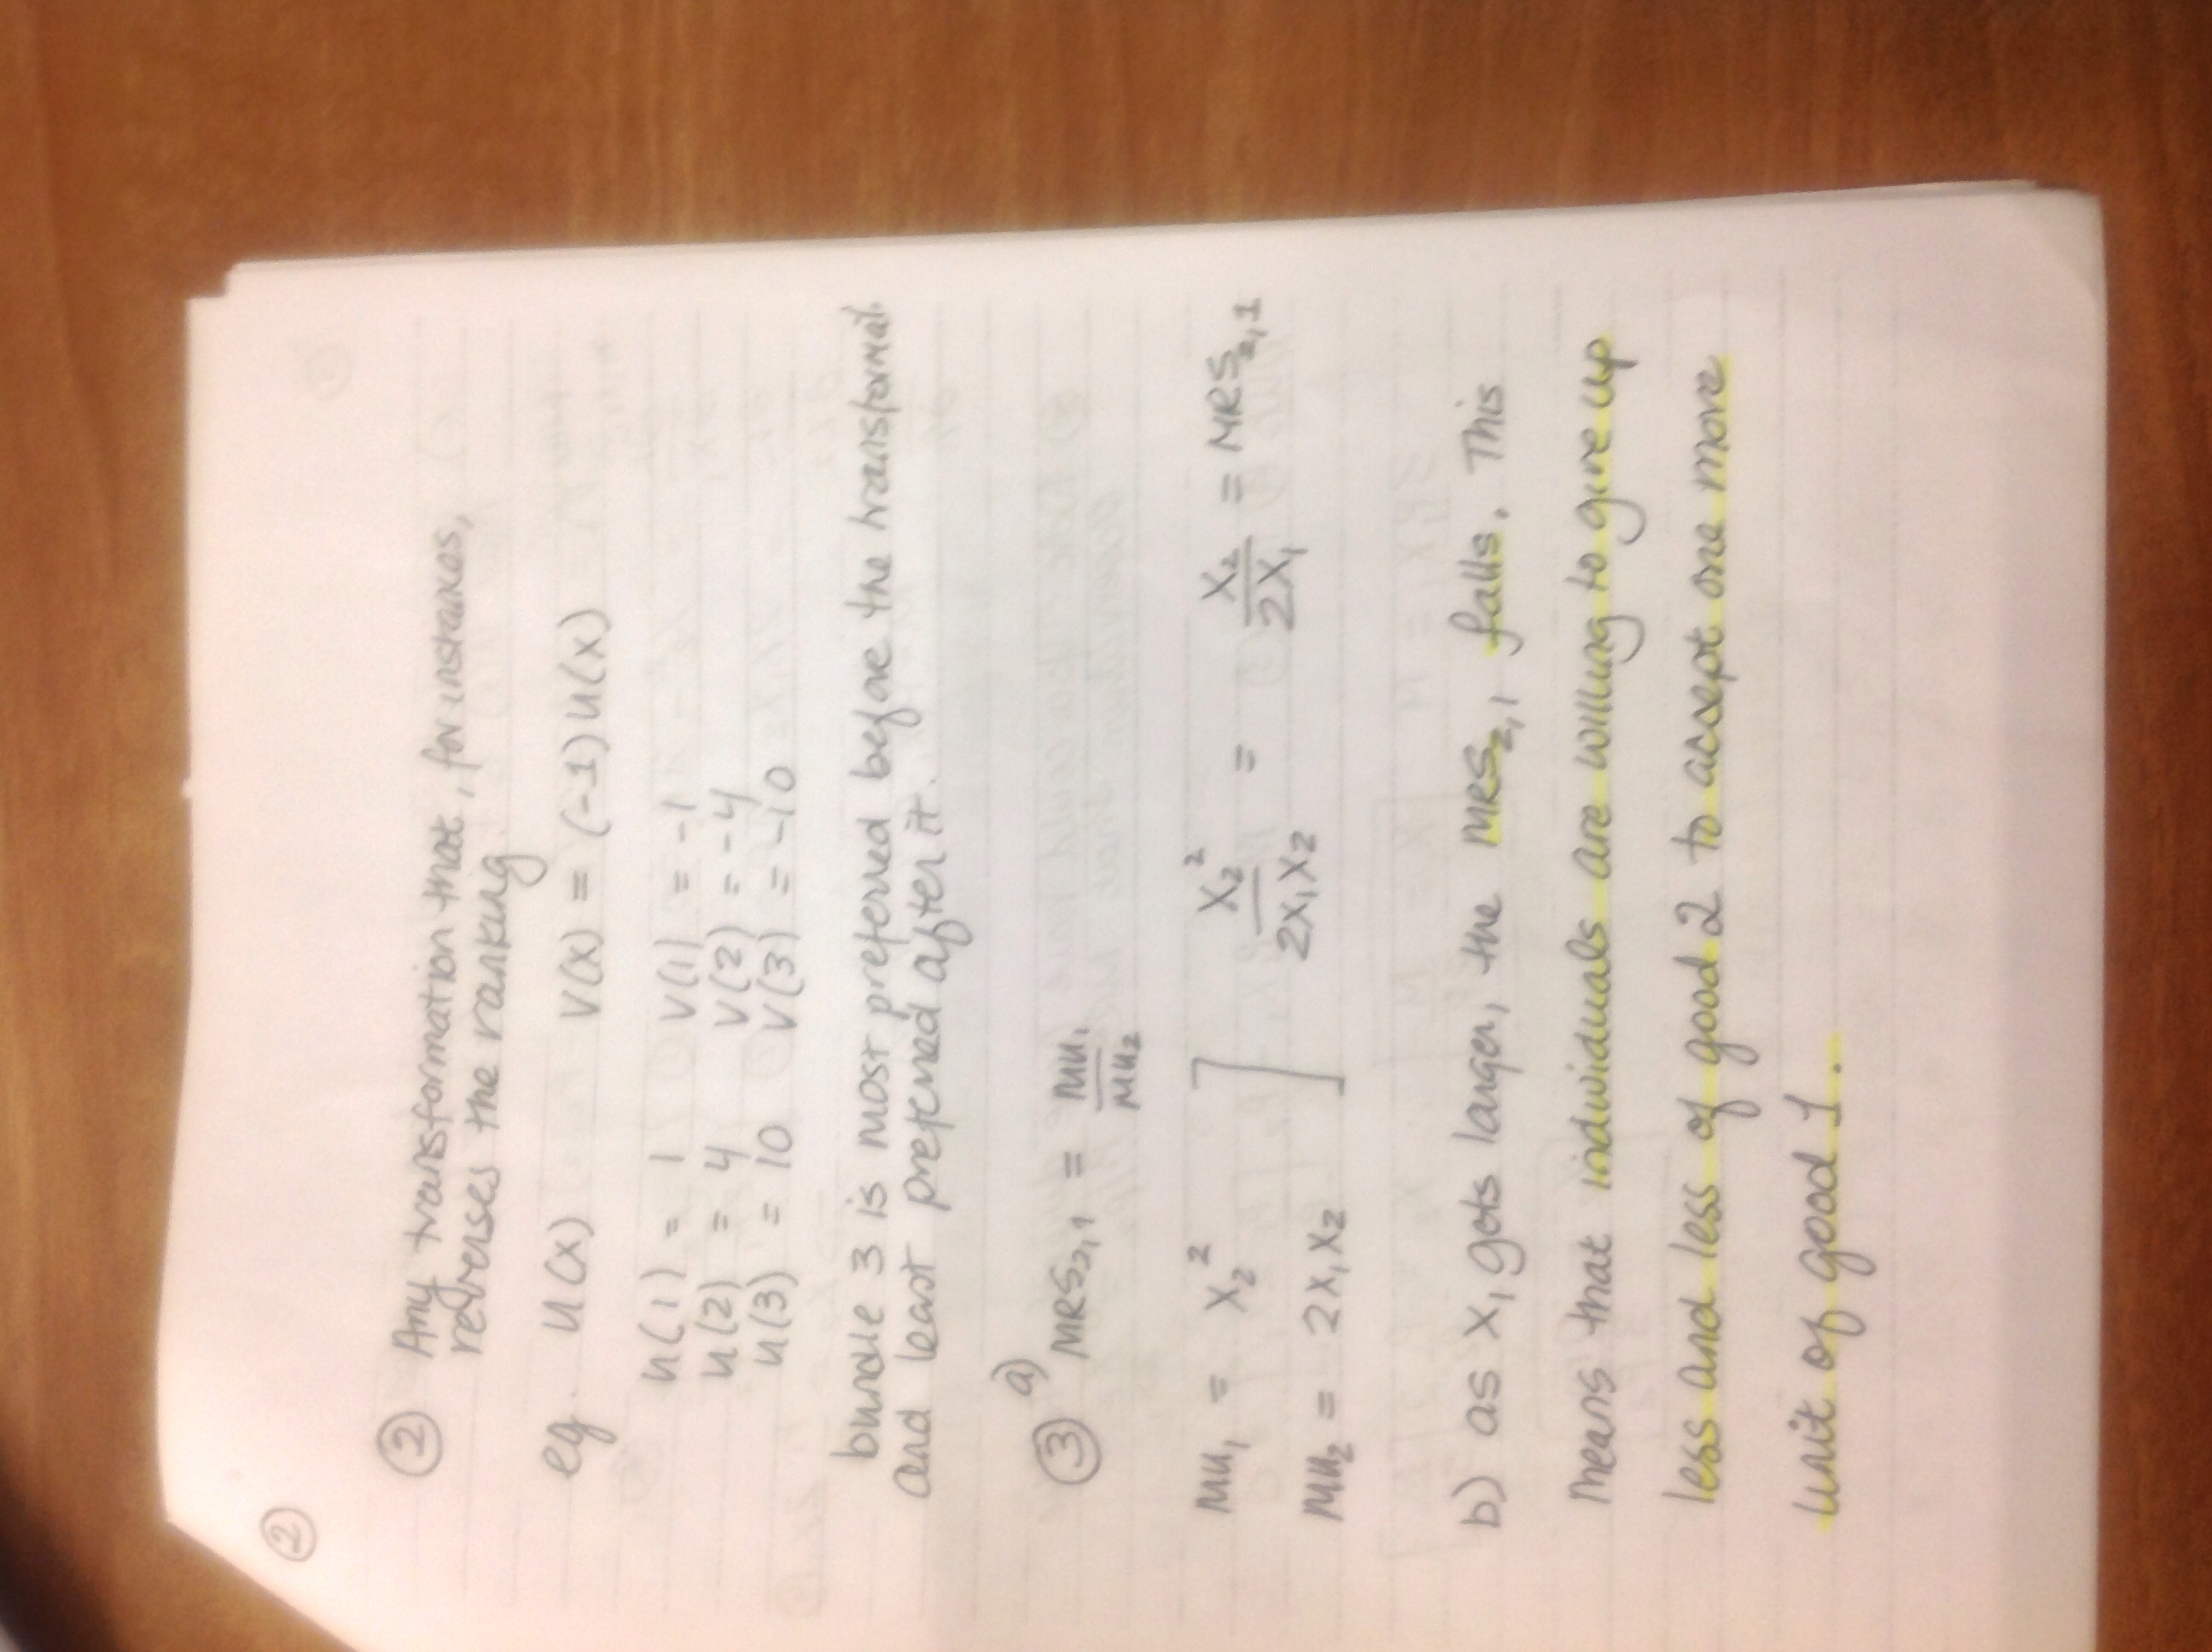 ②
② Any transformation that, for instances,
reverses the ranking
eg. u(x) v(x) = (-1)u(x)
u(1) = 1 v(1) = -1
u(2) = 4 v(2) = -4
u(3) = 10 v(3) = -10
bundle 3 is most preferred before the transformat.
and least preferred after it.
③ a) MRS₂,₁ = MU₁/MU₂
MU₁ = X₂² ] X₂²/2X₁X₂ = X₂/2X₁ = MRS₂,₁
MU₂ = 2X₁X₂
b) as X₁ gets larger, the MRS₂,₁ falls. This
means that individuals are willing to give up
less and less of good 2 to accept one more
unit of good 1.